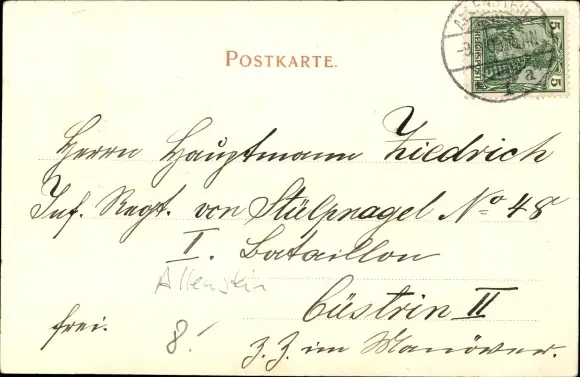 POSTKARTE.
ALLENSTEIN
5 REICHSPOST 5
a
Herrn Hauptmann Ziedrich
Inf. Regt. von Stülpnagel No 48
I. Bataillon
Allenstein
Cüstrin II
frei.
8.-
z. Z. im Manöver.